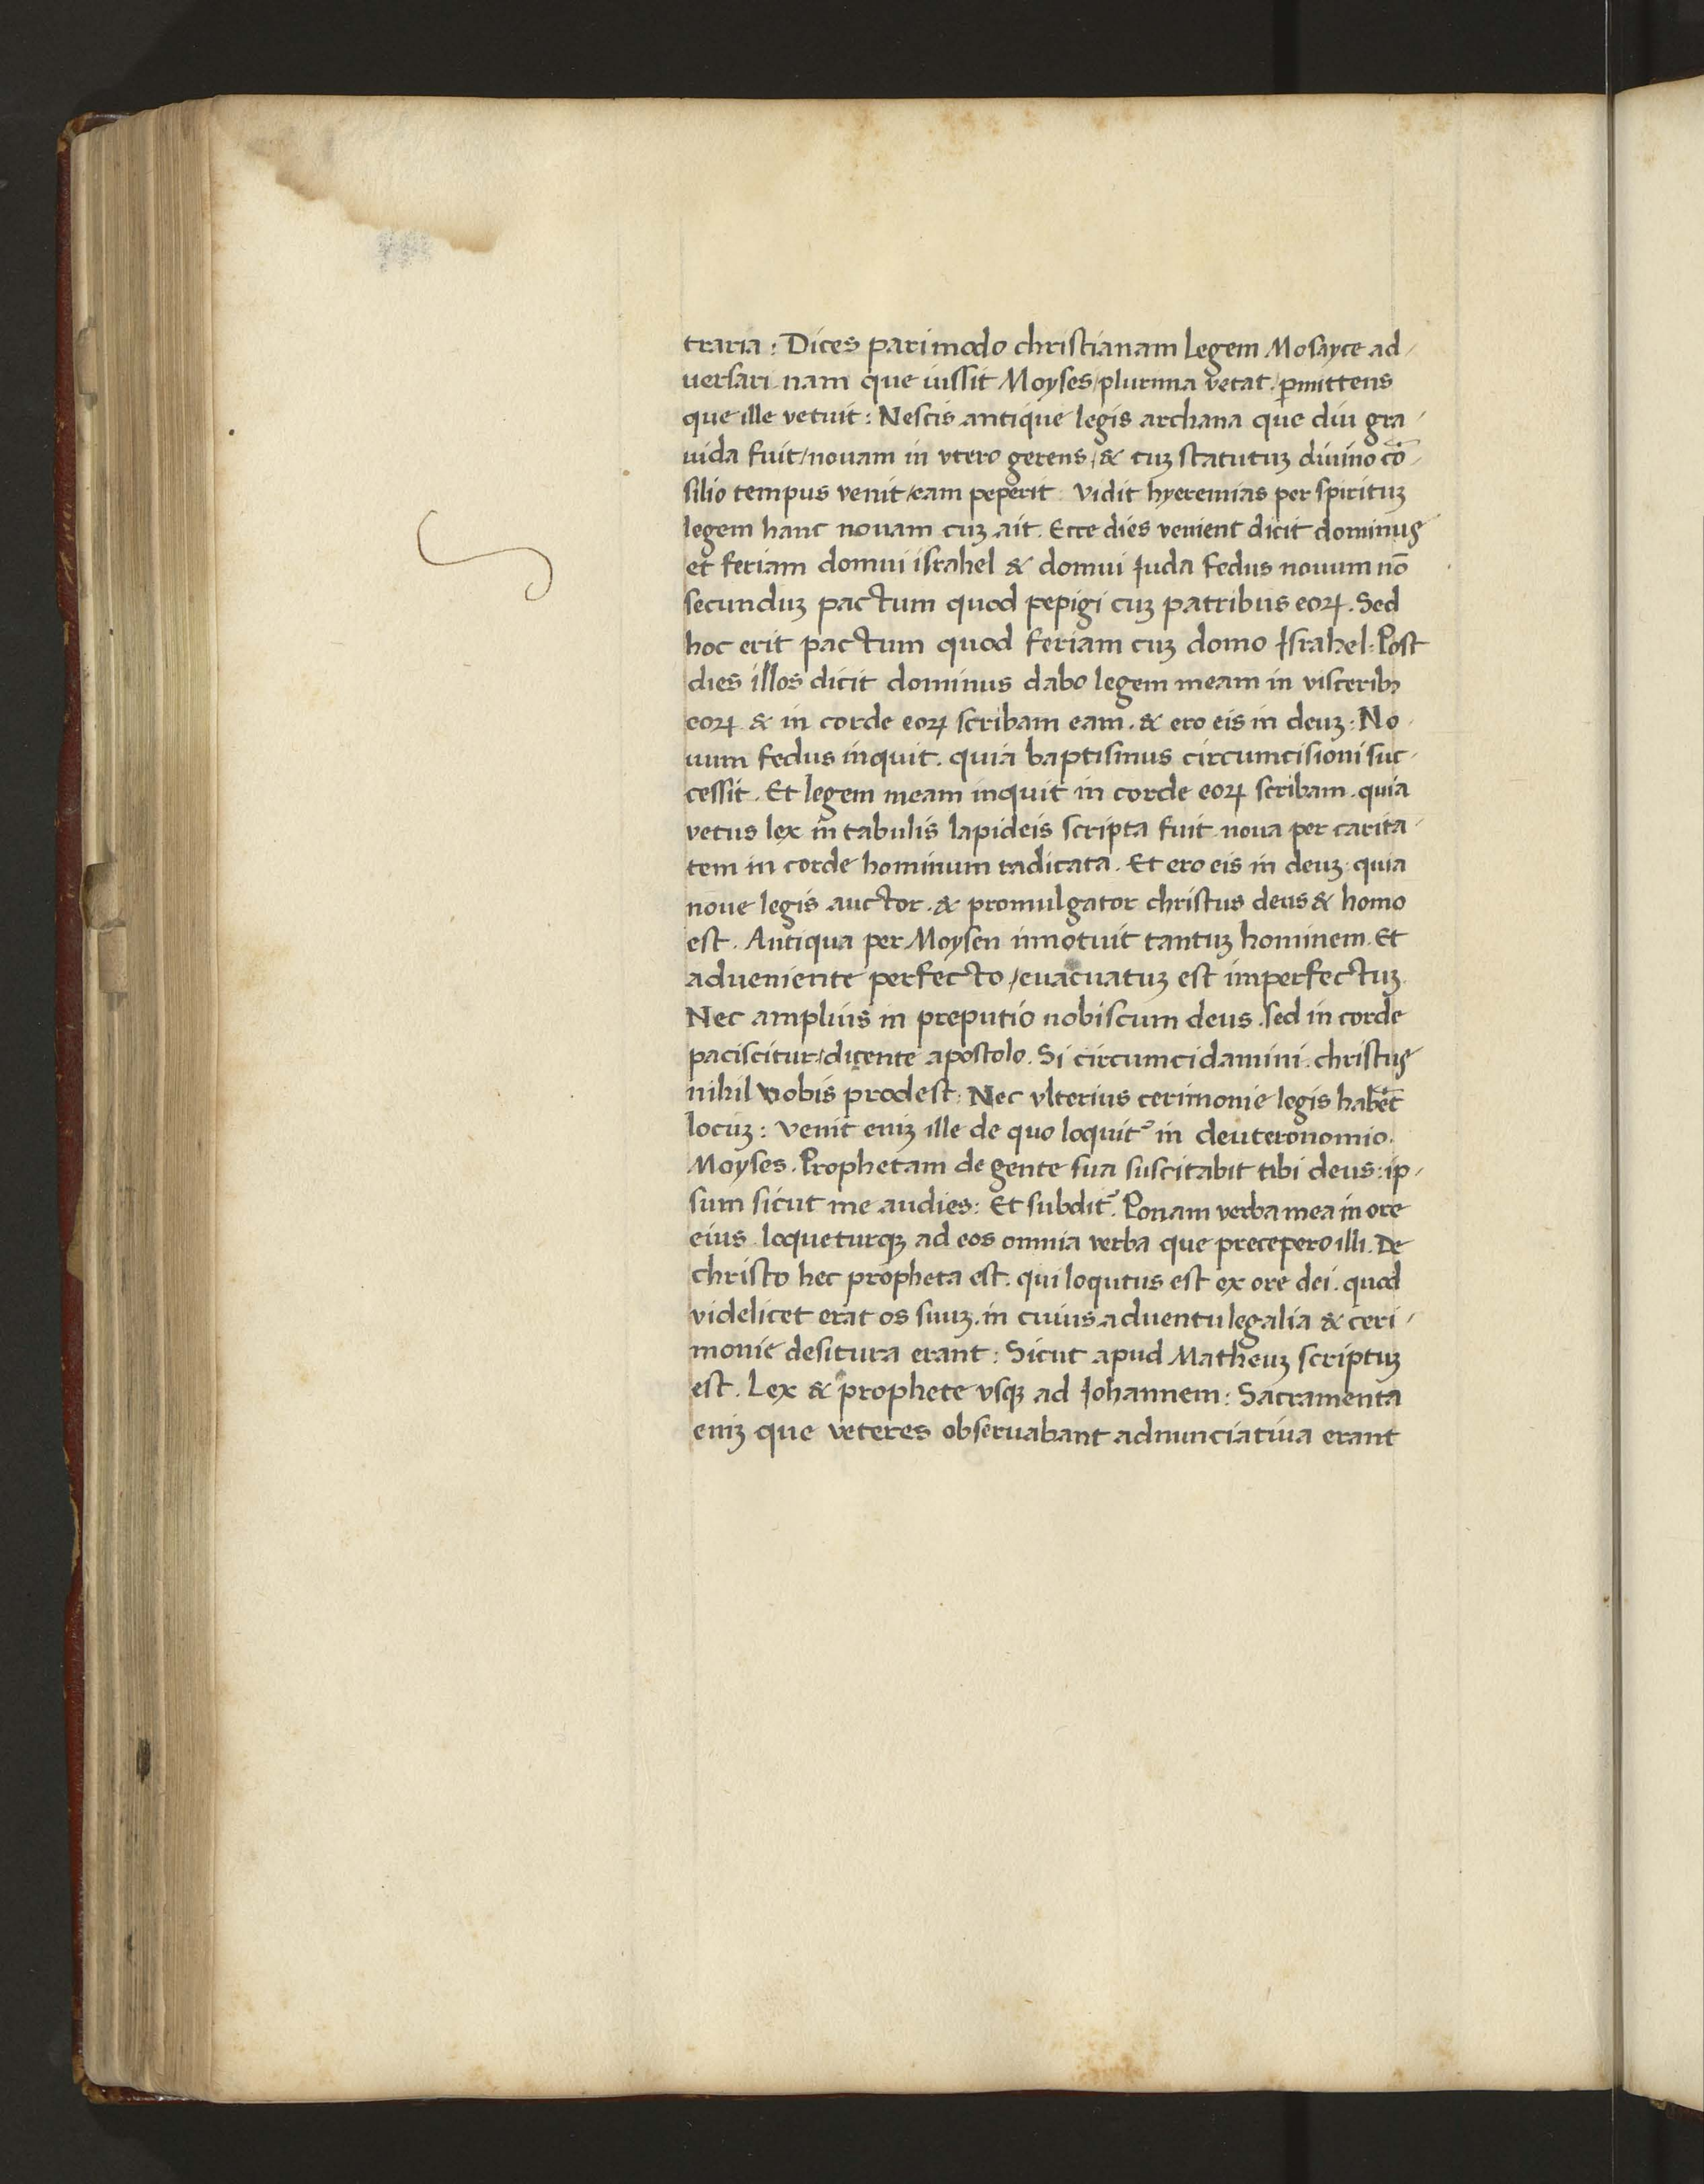 traria : Dices pari modo christianam legem Mosayce ad/
uersari nam que iussit Moyses / plurima vetat / ꝑmittens
que ille vetuit : Nescis antique legis archana que diu gra/
uida fuit / nouam in vtero gerens / & cuꝫ statutuꝫ diuino cō/
silio tempus venit / eam peperit . Vidit hyeremias per spirituꝫ
legem hanc nouam cuꝫ ait . Ecce dies venient dicit dominus
et feriam domui israhel & domui Iuda fedus nouum nō
secunduꝫ pactum quod pepigi cuꝫ patribus eoꝝ . Sed
hoc erit pactum quod feriam cuꝫ domo Israhel : Post
dies illos dicit dominus dabo legem meam in visceribꝫ
eoꝝ & in corde eoꝝ scribam eam . & ero eis in deuꝫ : No/
uum fedus inquit . quia baptismus circumcisioni suc/
cessit . Et legem meam inquit in corde eoꝝ scribam . quia
vetus lex in tabulis lapideis scripta fuit . noua per carita/
tem in corde hominum radicata . Et ero eis in deuꝫ . quia
noue legis auctor . & promulgator christus deus & homo
est . Antiqua per Moysen innotuit tantuꝫ hominem . Et
adueniente perfecto / euacuatuꝫ est imperfectuꝫ
Nec amplius in preputio nobiscum deus . sed in corde
paciscitur / dicente apostolo . Si circumcidamini . christus
nihil vobis prodest : Nec vlterius cerimonie legis habēt
locuꝫ : Venit eniꝫ ille de quo loquit᷑ in deuteronomio .
Moyses . Prophetam de gente sua suscitabit tibi deus : ip/
sum sicut me audies : Et subdit᷑ . Ponam verba mea in ore
eius loqueturqꝫ ad eos omnia verba que precepero illi . De
christo hec propheta est . qui loqutus est ex ore dei . quod
videlicet erat os suuꝫ . in cuius aduentu legalia & ceri/
monie desitura erant : Sicut apud Matheuꝫ scriptuꝫ
est . Lex & prophete vsqꝫ ad Iohannem : Sacramenta
eniꝫ que veteres obseruabant adnunciatiua erant